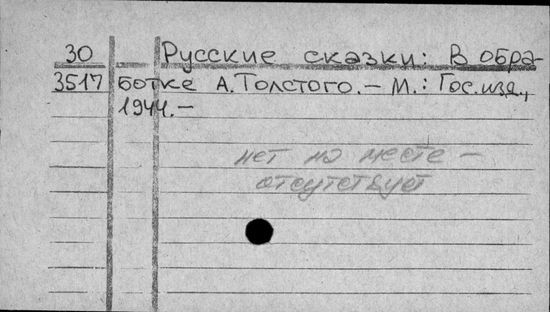 30 Русские сказки: В обра-
3517 ботке А.Толстого.– М.: Гос.изд.,
1944.–
нет на месте –
отсутствует